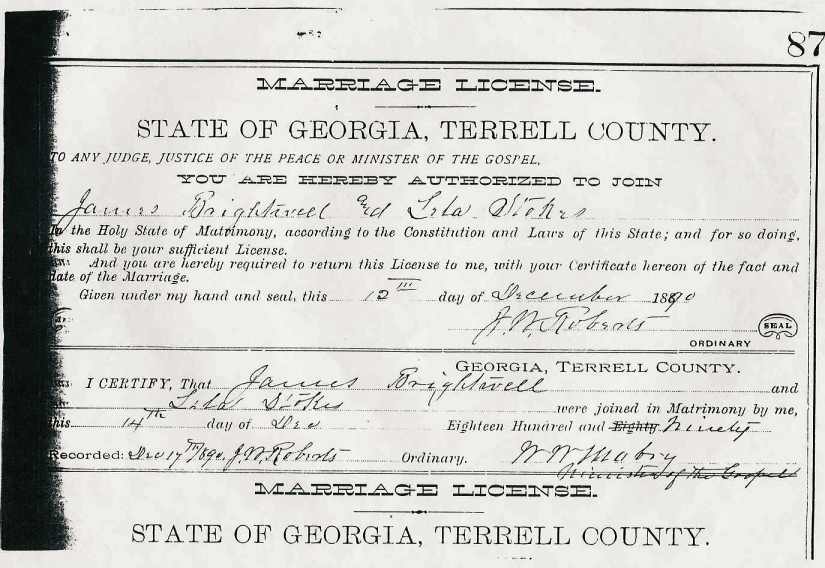 87
MARRIAGE LICENSE.
STATE OF GEORGIA, TERRELL COUNTY.
TO ANY JUDGE, JUSTICE OF THE PEACE OR MINISTER OF THE GOSPEL,
YOU ARE HEREBY AUTHORIZED TO JOIN
James Brightwell and Lila Stokes
In the Holy State of Matrimony, according to the Constitution and Laws of this State; and for so doing,
this shall be your sufficient License.
And you are hereby required to return this License to me, with your Certificate hereon of the fact and
date of the Marriage.
Given under my hand and seal, this 12th day of December 1890
J. W. Roberts SEAL
ORDINARY
GEORGIA, TERRELL COUNTY.
I CERTIFY, That James Brightwell and
Lila Stokes were joined in Matrimony by me,
this 14th day of Dec Eighteen Hundred and Eighty Ninety
Recorded: Dec 17th 1890 J. W. Roberts Ordinary. W W Mabry
Minister of the Gospel
MARRIAGE LICENSE.
STATE OF GEORGIA, TERRELL COUNTY.